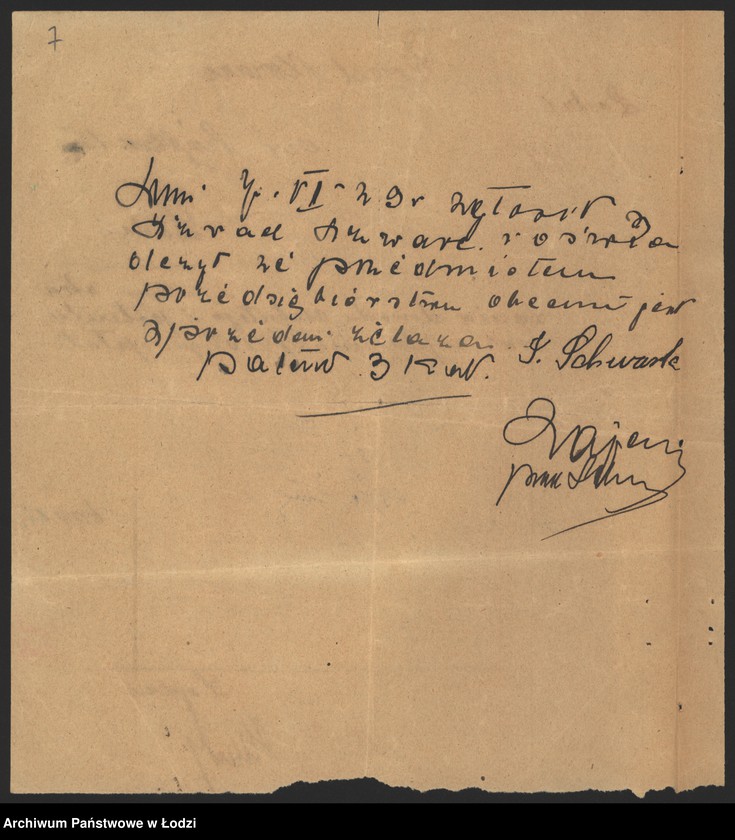 7
Dnia 7. VI - 29 r zgłosił
Szwarc i oświad
czył że przedmiotem
przedsiębiorstwa obecnie jest
sprzedaż żelaza. J. Schwartz
patent 3 kat.
Archiwum Państwowe w Łodzi